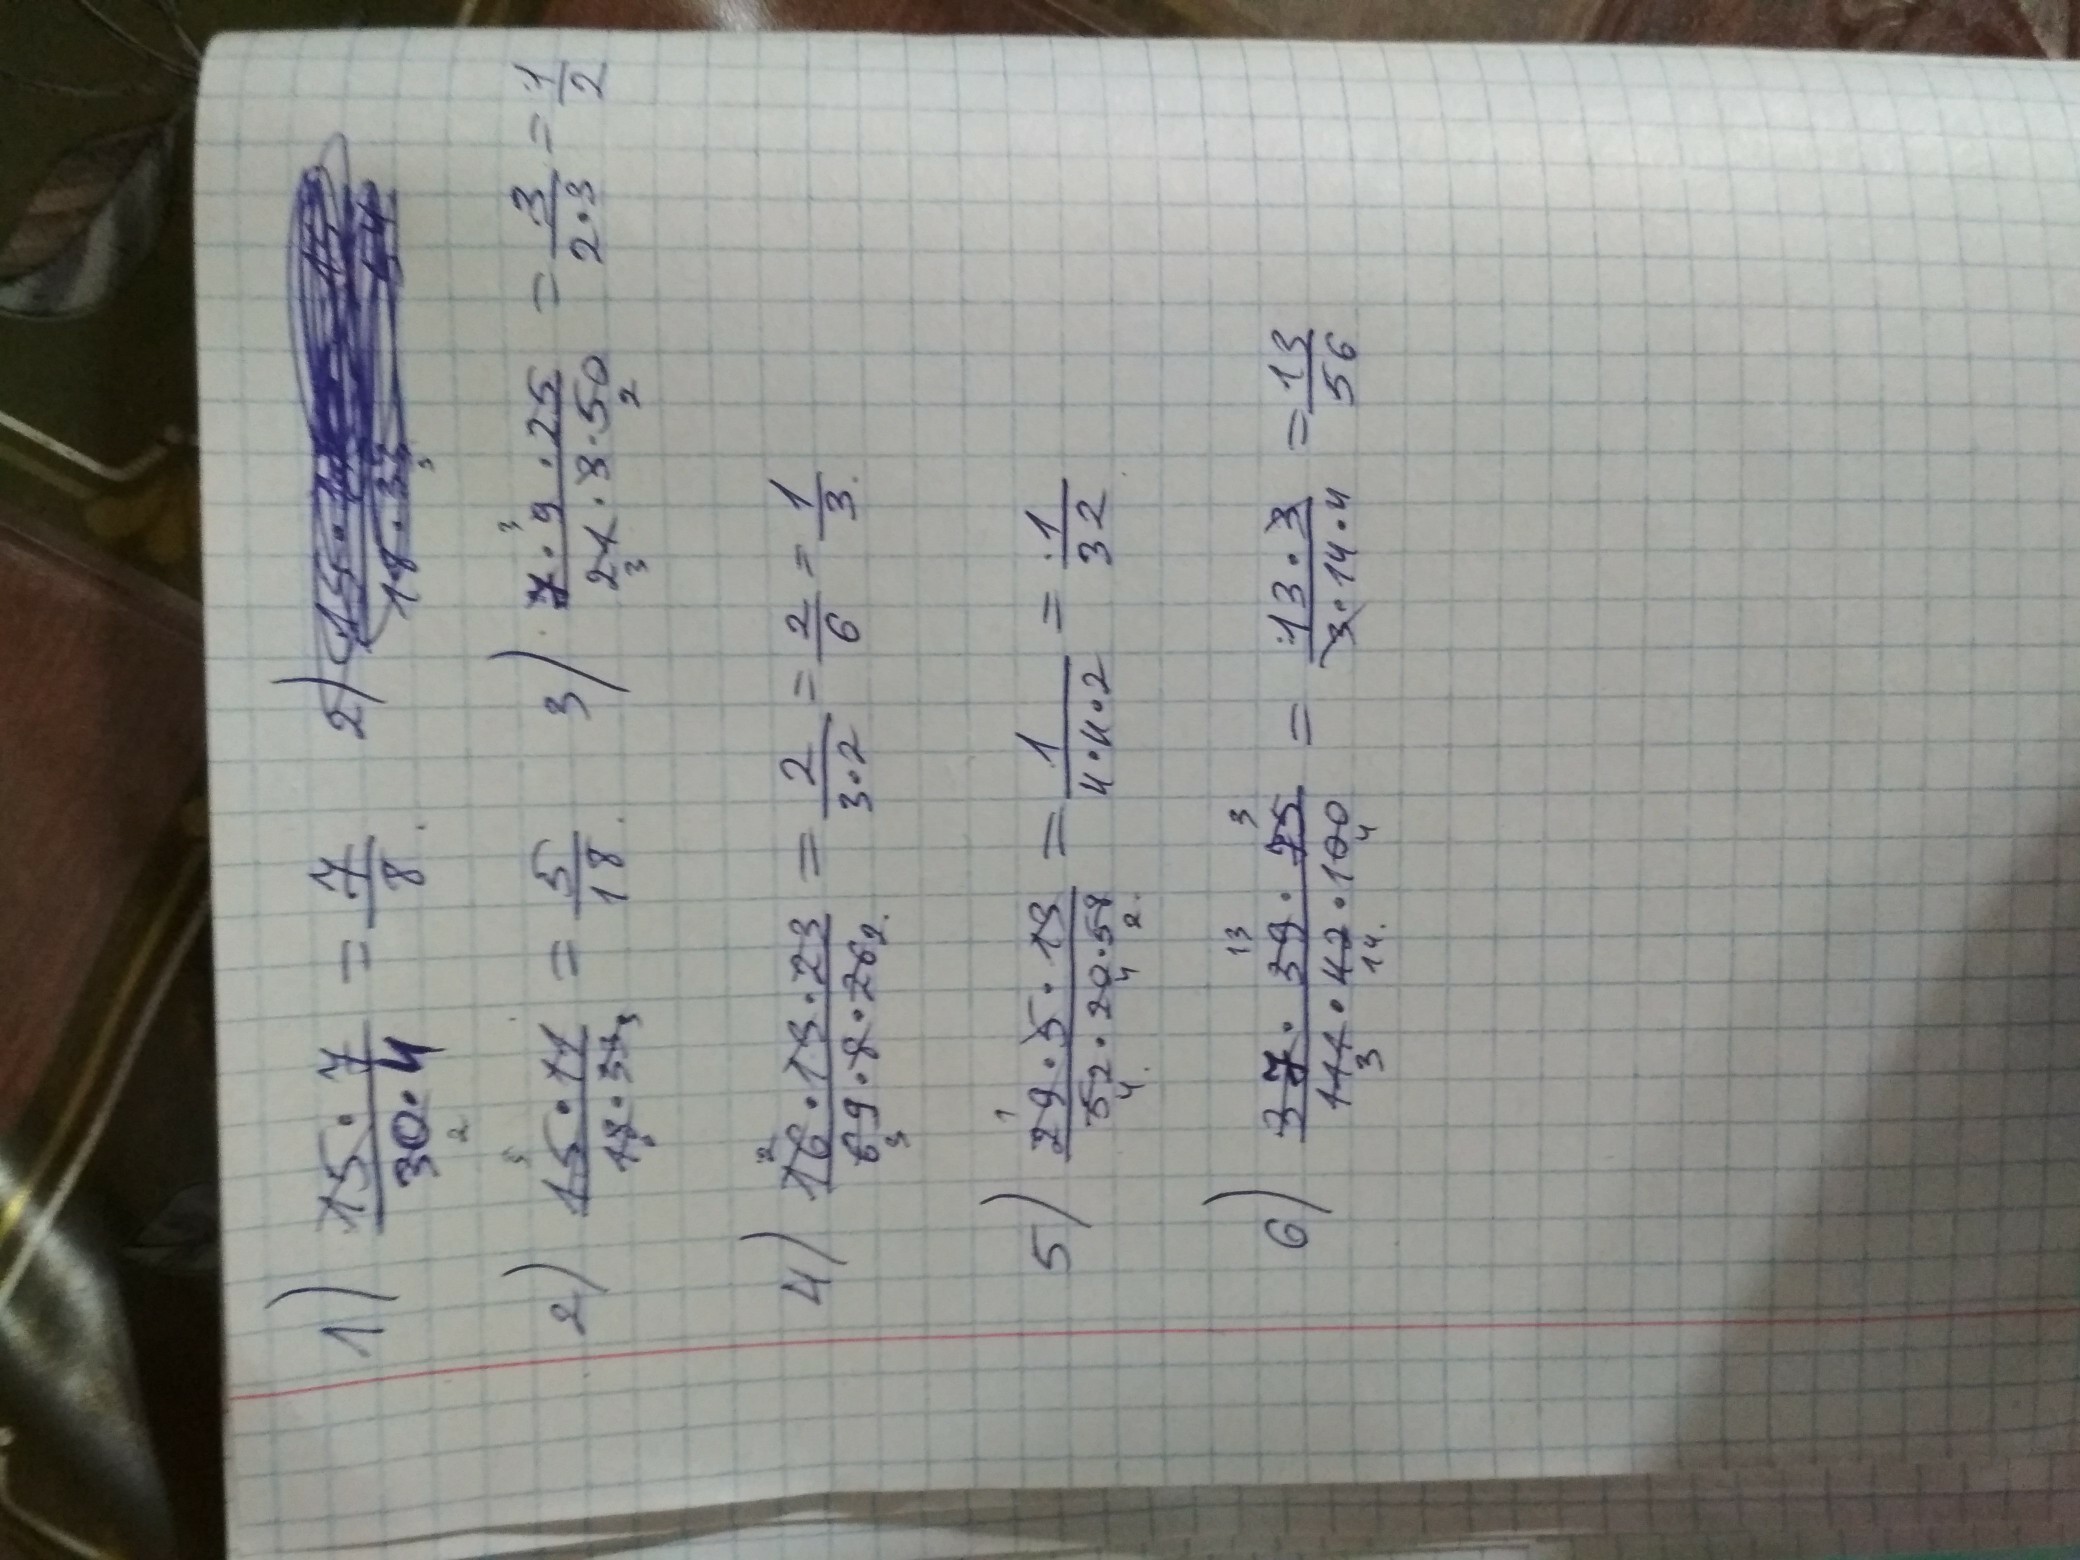 1) 15·7/30·4 = 7/8. 2) 15·11/18·33
2) 15·11/18·33 = 5/18. 3) 7·9·25/21·3·50 = 3/2·3 = 1/2
4) 16·13·23/69·8·26 = 2/3·2 = 2/6 = 1/3.
5) 29·5·13/52·20·58 = 1/4·4·2 = 1/32
6) 37·39·75/111·42·100 = 13·3/3·14·4 = 13/56